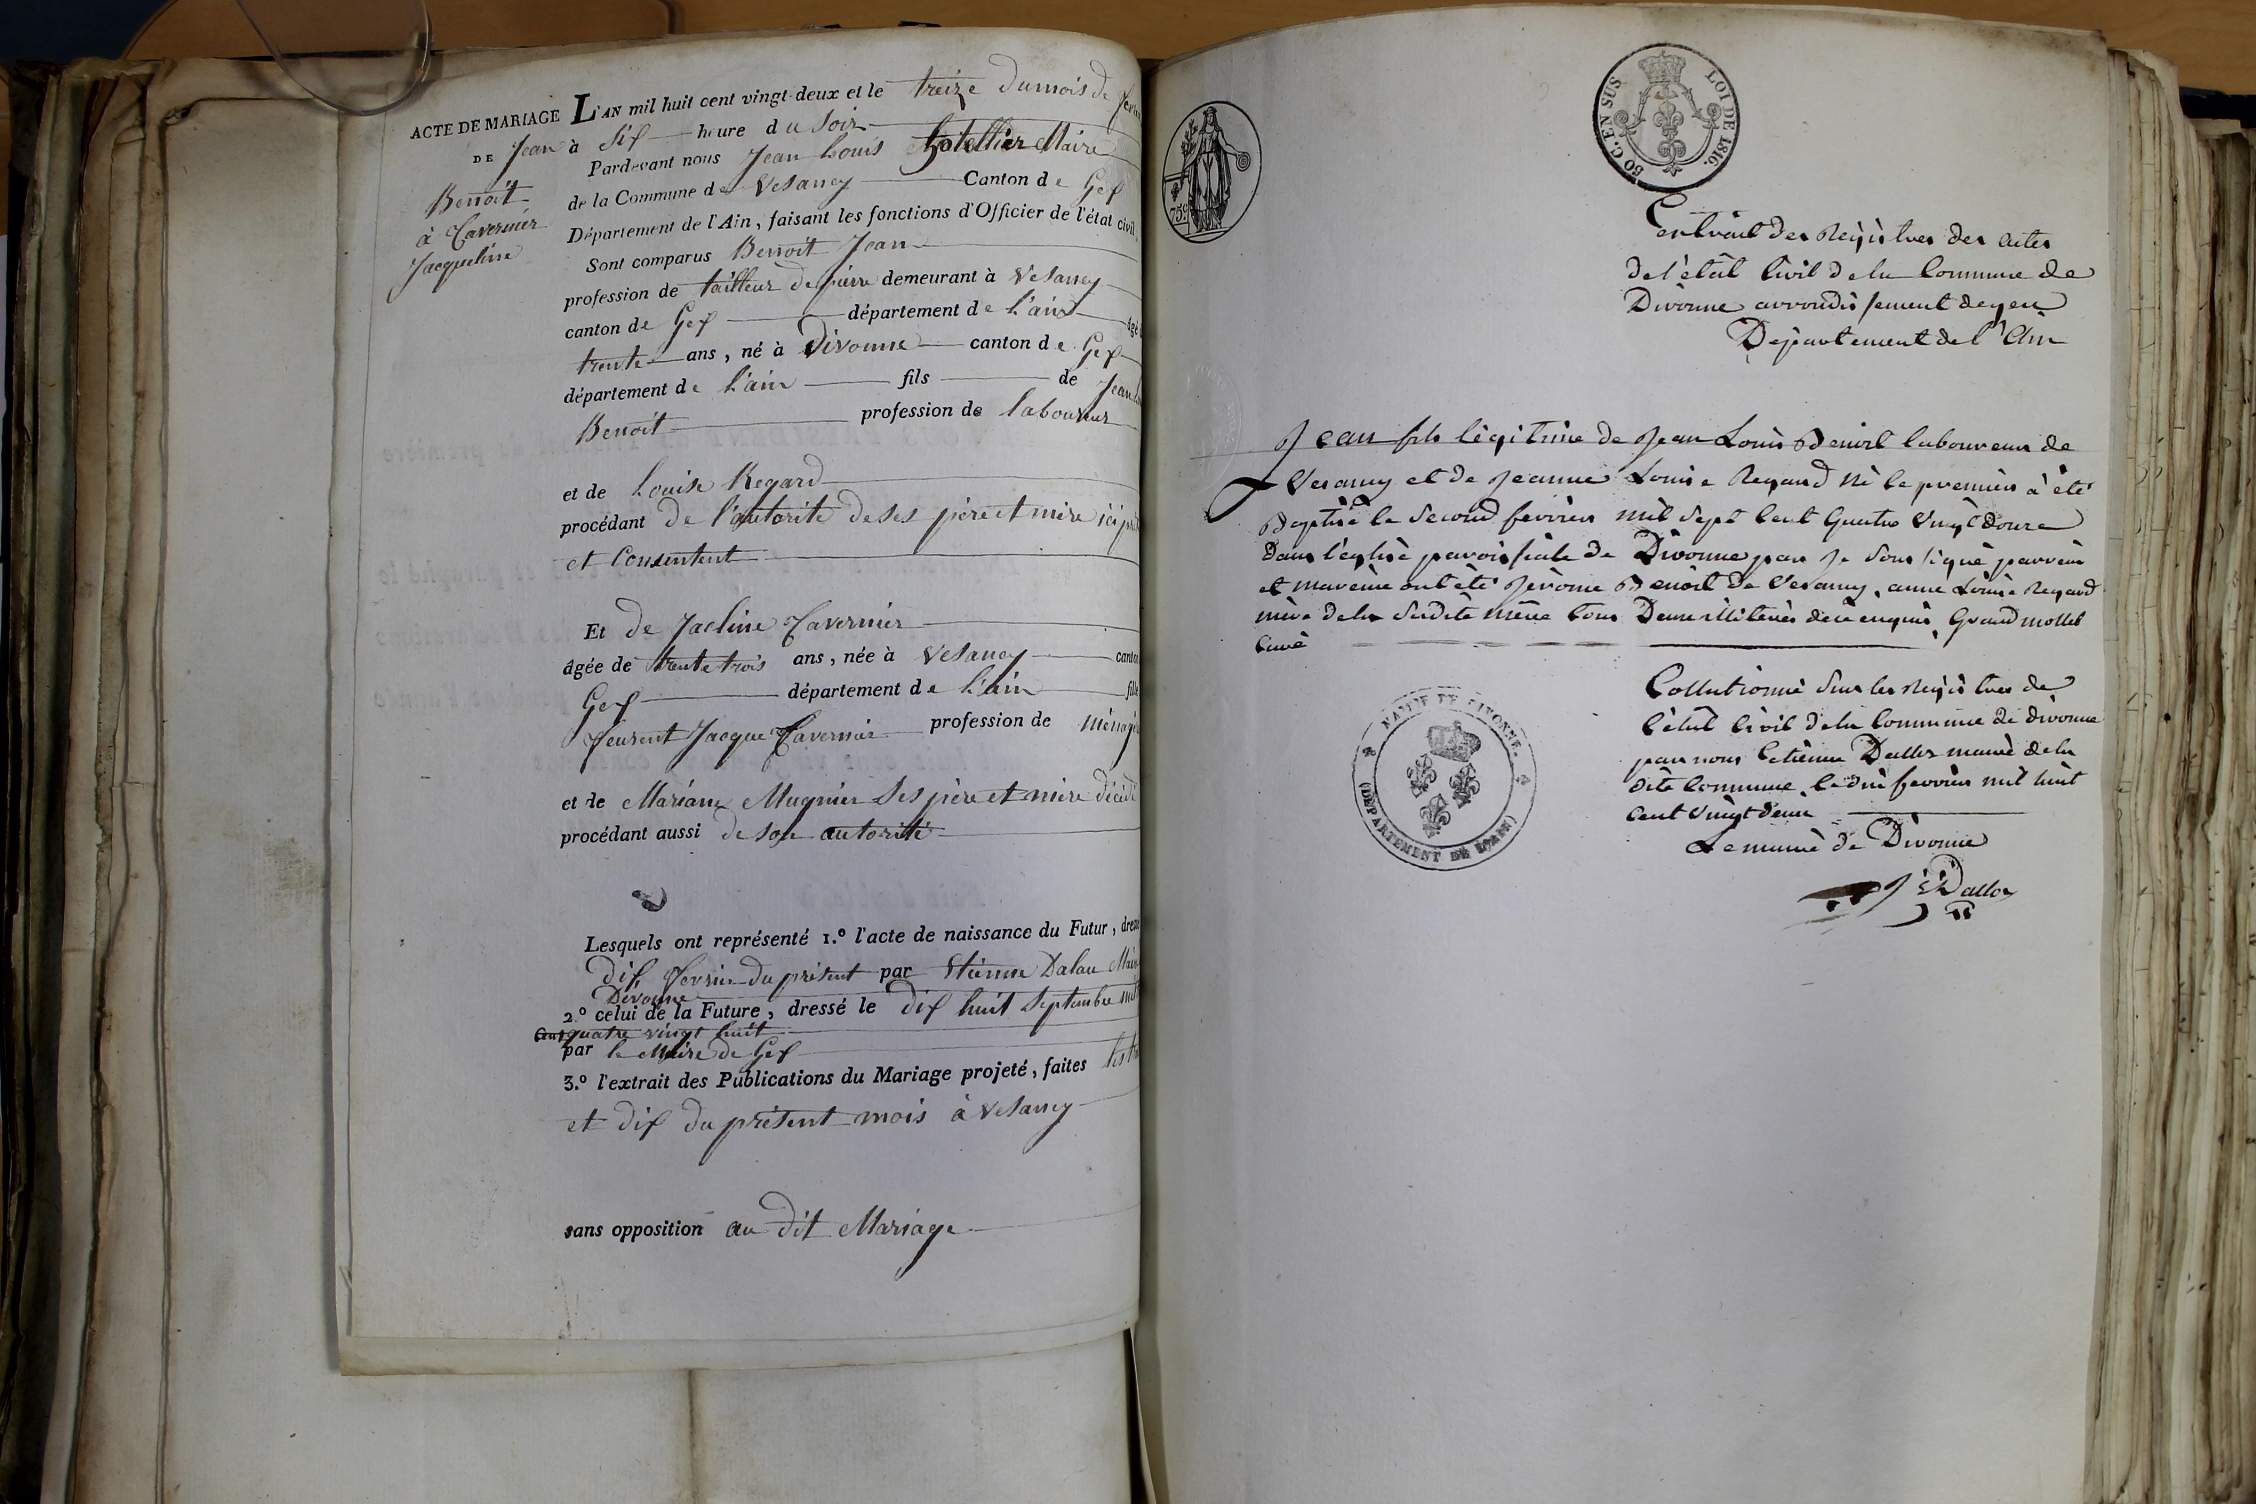 ACTE DE MARIAGE
DE Jean
Benoit
à Tavernier
Jacqueline
L'AN mil huit cent vingt-deux et le treize du mois de
à Six heure du Soir
Pardevant nous Jean Louis hotellier Maire
de la Commune de Vesancy Canton de Gex
Département de l'Ain, faisant les fonctions d'Officier de l'état civil,
Sont comparus Benoit Jean
profession de tailleur de pierre demeurant à Vesancy
canton de Gex département de L'ain âgé
trente ans, né à Divonne canton de Gex
département de L'ain fils de Jean
Benoit profession de laboureur
et de Louise Regard
procédant de l'autorité de ses père et mère ici
et Consentent
Et de Jacline Tavernier
âgée de trente trois ans, née à Vesancy canton
Gex département de L'ain fille
feu Jacque Tavernier profession de
et de Mariane Mugnier Ses père et mère
procédant aussi de son autorité
Lesquels ont représenté 1.º l'acte de naissance du Futur,
dix fevrier du présent par Etienne Dalau
Divonne
2.º celui de la Future, dressé le dix huit Septembre
Cent quatre vingt huit
par le Maire de Gex
3.º l'extrait des Publications du Mariage projeté, faites
et dix du présent mois à Vesancy
sans opposition au dit Mariage
75 c
50 C. EN SUS
LOI DE 1816.
Extrait des Registres des actes
de l'état Civil de la Commune de
Divonne arrondissement de gex
Departement de l'Ain
Jean fils légitime de Jean Louis Benoit laboureur de
Vesancy et de Jeanne Louise Regard né le premier à été
Baptisé le second fevrier mil sept cent Quatre vingt douze
dans l'eglise paroissiale de Divonne par Je soussigné parrein
et mareine ont été Jérôme Benoit de Vesancy, anne Louise Regard
mère de la susdite mère tous Deux illiterés de ce enquis, Grandmottet
Curé
Collationné sur les Registres de
l'état Civil de la Commune de divonne
par nous Etienne Dallex maire de la
dite Commune le dix fevrier mil huit
cent vingt deux
Le maire de Divonne
Dallex
MAIRIE DE DIVONNE.
(DÉPARTEMENT DE L'AIN)